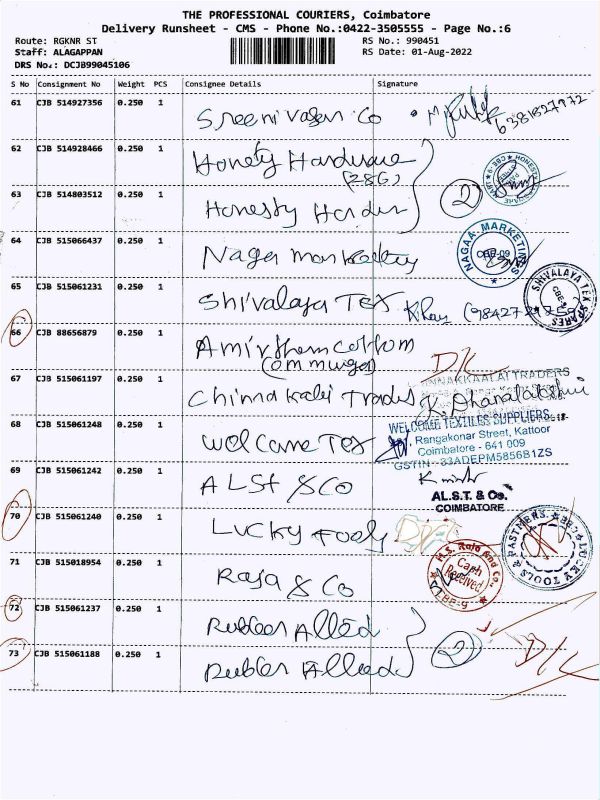 THE PROFESSIONAL COURIERS, Coimbatore
Delivery Runsheet - CMS - Phone No.:0422-3505555 - Page No.:6
Route: RGKNR ST
Staff: ALAGAPPAN
DRS No.: DCJB99045106
RS No.: 990451
RS Date: 01-Aug-2022
S No Consignment No Weight PCS Consignee Details Signature
61 CJB 514927356 0.250 1 Sreenivasan Co 6381827972
62 CJB 514928466 0.250 1 Honesty Hardware
(286)
63 CJB 514803512 0.250 1 Honesty Harder 2
64 CJB 515066437 0.250 1 Naga Marketing
NAGAA MARKETINGS
CBE-09
65 CJB 515061231 0.250 1 Shivalaya TEX
SHIVALAYA TEX SPARES
66 CJB 88656879 0.250 1 Amirtham cottom
67 CJB 515061197 0.250 1 Chinna Kali Trades K. Dhanalakshmi
68 CJB 515061248 0.250 1 Welcome TEX
WELCOME TEXTILES SUPPLIERS
Rangakonar Street, Kattoor
Coimbatore - 641 009
GSTIN - 33ADEPM5856B1ZS
69 CJB 515061242 0.250 1 ALST & Co
AL.S.T. & Co.
COIMBATORE
70 CJB 515061240 0.250 1 Lucky Tools
LUCKY TOOLS & PARTNERS
71 CJB 515018954 0.250 1 Raja & Co
H.S. Raja And Co.,
Cash
Received
CBE-9
72 CJB 515061237 0.250 1 Rubber Allied
73 CJB 515061188 0.250 1 Rubber Allied 2